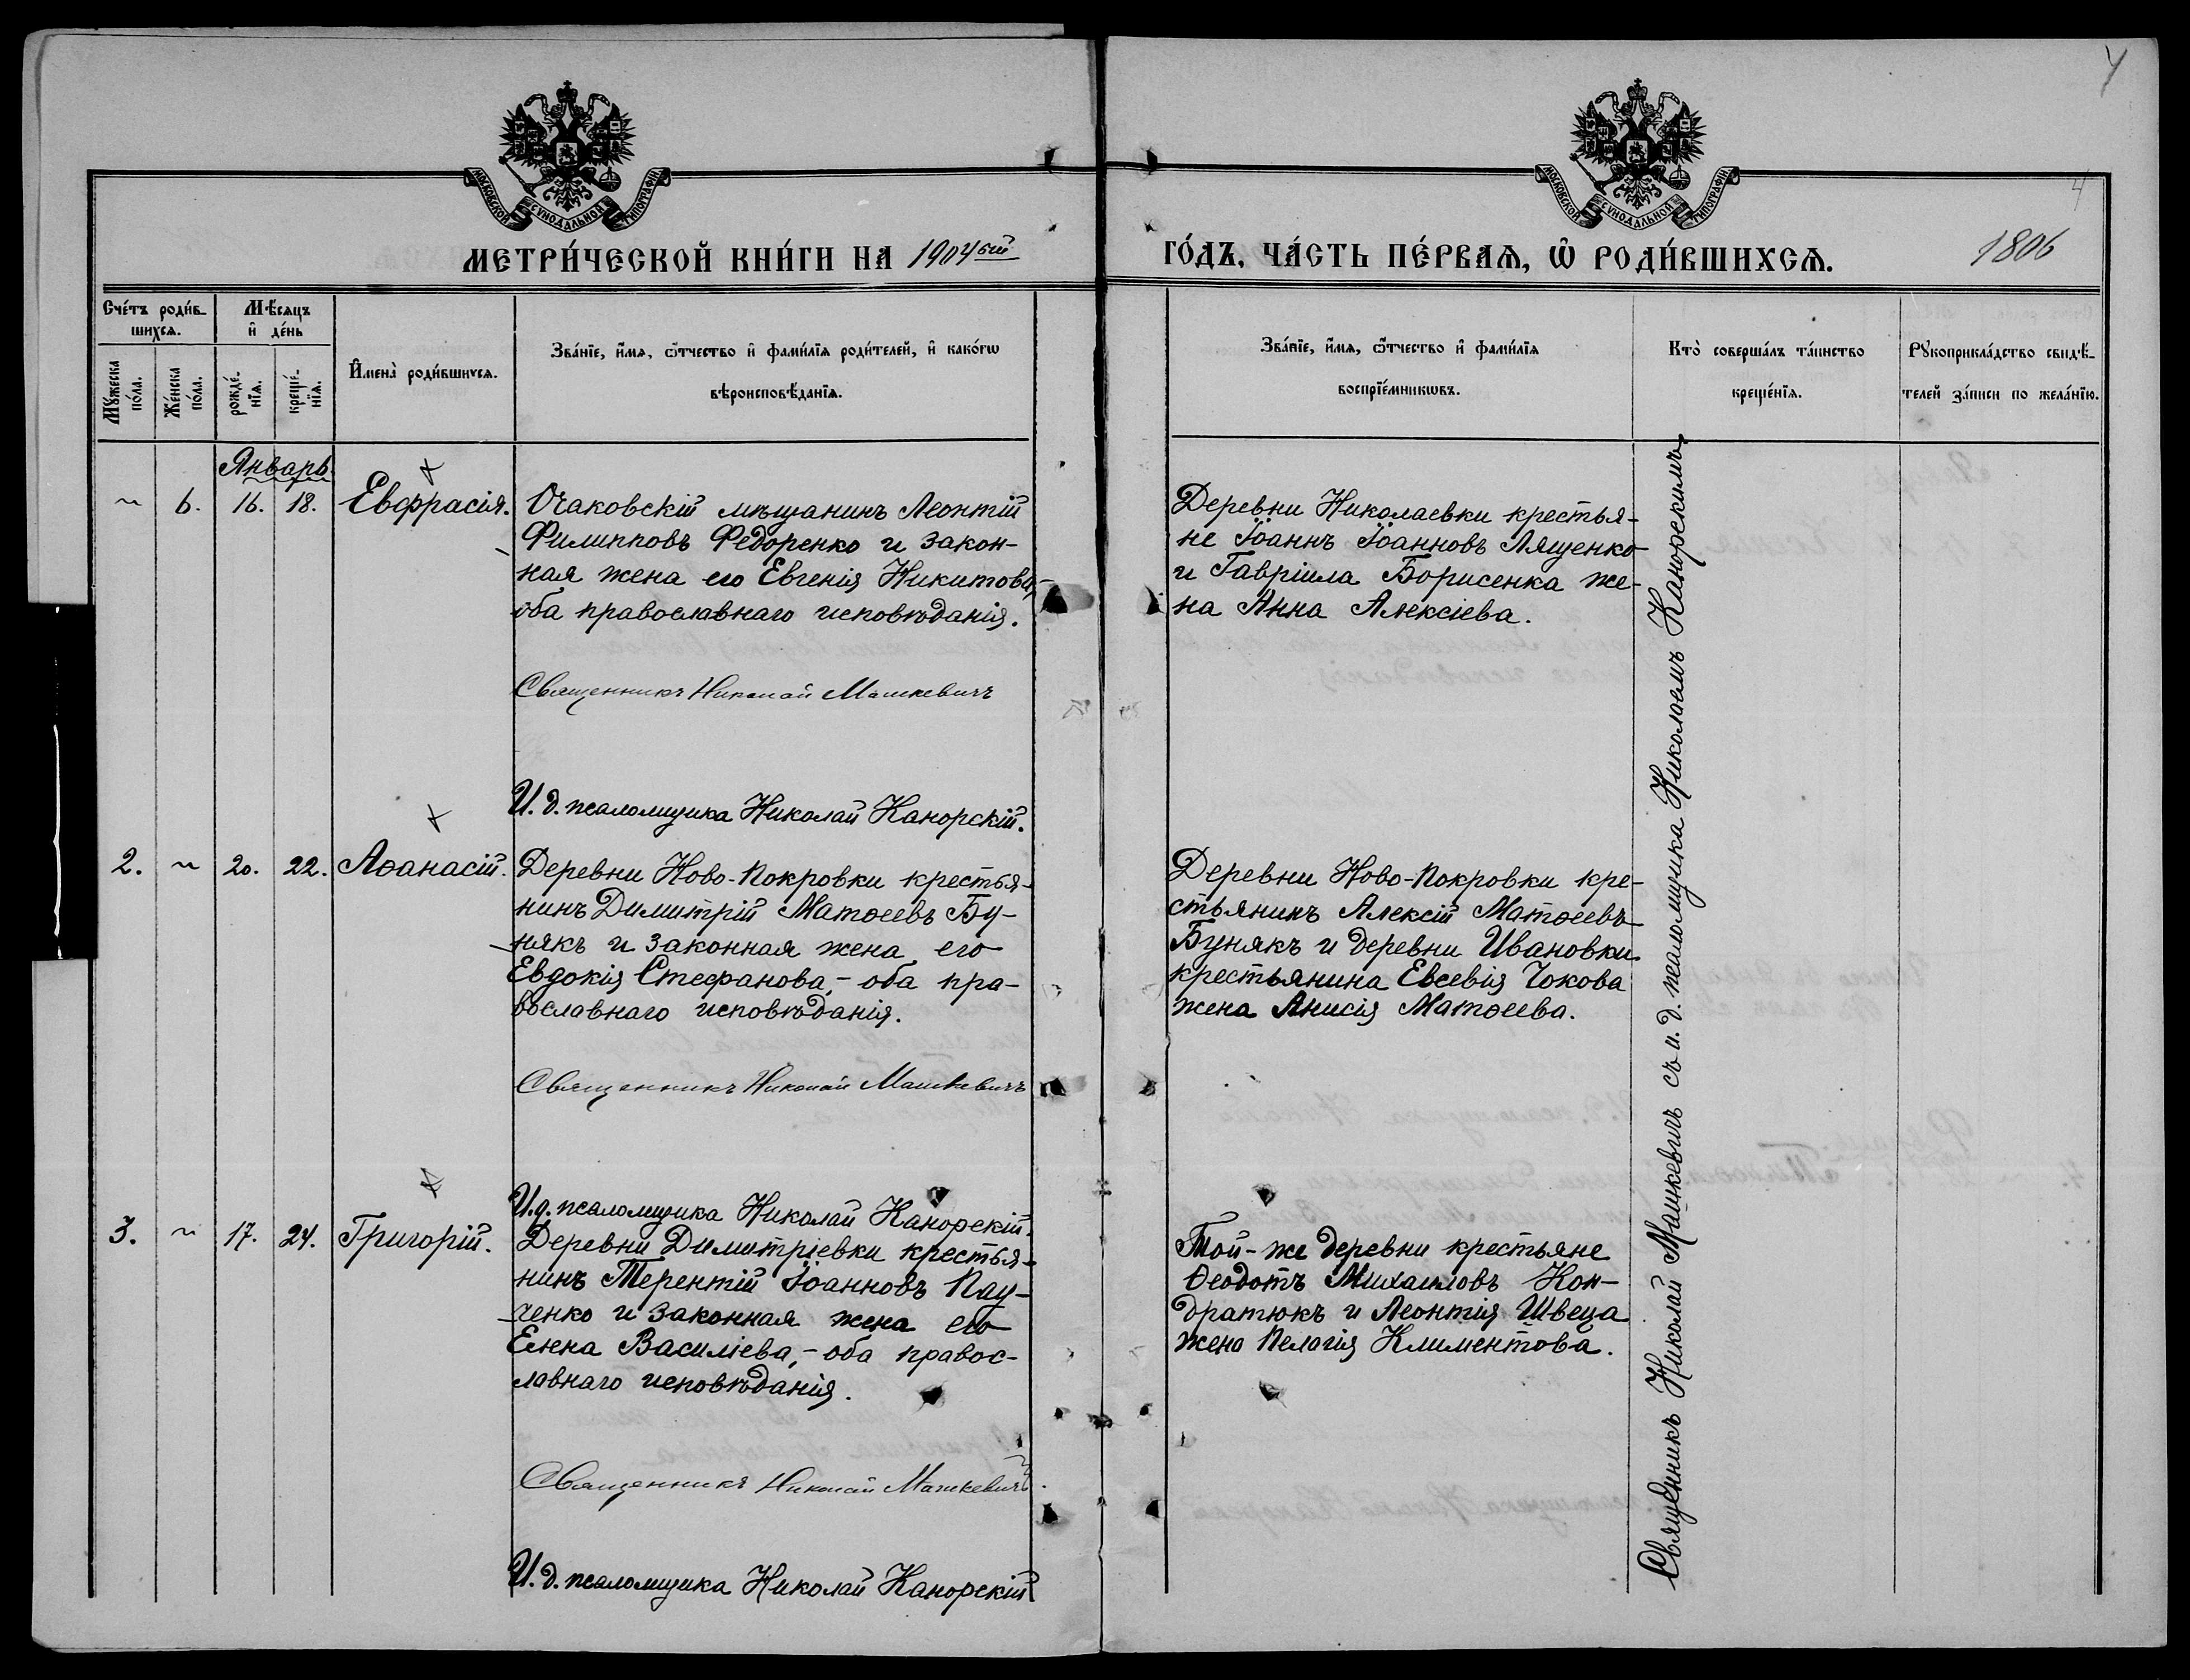 4
4
1806
МОСКОВСКОЙ СѴНОДАЛЬНОЙ ТИПОГРАФІИ
МОСКОВСКОЙ СѴНОДАЛЬНОЙ ТИПОГРАФІИ
МЕТРИ́ЧЕСКОЙ КНИ́ГИ НА 1904ый ГО́ДЪ, ЧА́СТЬ ПЕ́РВАѦ, Ѽ РОДИ́ВШИХСѦ.
Сче́тъ роди́в-
шихсѧ.
Мꙋ́жеска
по́ла.
Же́нска
по́ла.
Мѣ́сѧцъ
и҆ де́нь
рожде́-
нїѧ.
креще́-
нїѧ.
И҆мена̀ роди́вшихсѧ.
Зва́нїе, и҆́мѧ, ѻ҆́тчество и҆ фами́лїѧ роди́телей, и҆ како́гѡ
вѣроисповѣ́данїѧ.
Зва́нїе, и҆́мѧ, ѻ҆́тчество и҆ фами́лїѧ
воспрїе́мникѡвъ.
Кто̀ соверша́лъ та́инство
креще́нїѧ.
Рꙋкоприкла́дство свидѣ́-
телей за́писи по жела́нїю.
Январь.
~ 6. 16. 18. Евфрасія.
Очаковскій мѣщанинъ Леонтій
Филипповъ Федоренко и закон-
ная жена его Евгенія Никитова,-
оба православнаго исповѣданія.
Священникъ Николай Машкевичъ
И. д. псаломщика Николай Канорскій.
Деревни Николаевки крестья-
не Іоаннъ Іоанновъ Лященко
и Гавріила Борисенка же-
на Анна Алексіева.
2. ~ 20. 22. Аѳанасій.
Деревни Ново-Покровки крестья-
нинъ Димитрій Матѳеевъ Бу-
някъ и законная жена его
Евдокія Стефанова,- оба пра-
вославнаго исповѣданія.
Священникъ Николай Машкевичъ
И. д. псаломщика Николай Канорскій.
Деревни Ново-Покровки кре-
стьянинъ Алексій Матѳеевъ
Бунякъ и деревни Ивановки
крестьянина Евсевія Чокова
жена Анисія Матѳеева.
3. ~ 17. 24. Григорій.
Деревни Димитріевки крестья-
нинъ Терентій Іоанновъ Пау-
ченко и законная жена его
Елена Василіева,- оба правос-
лавнаго исповѣданія.
Священникъ Николай Машкевичъ
И. д. псаломщика Николай Канорскій
Той-же деревни крестьяне
Ѳеодотъ Михаиловъ Кон-
дратюкъ и Леонтія Швеца
жена Пелагія Климентова.
Священникъ Николай Машкевичъ съ и. д. псаломщика Николаемъ Канорскимъ